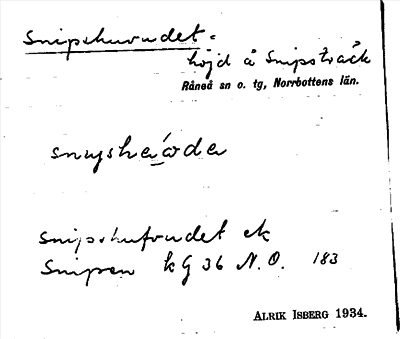 Snipshuvudet.
höjd å Snipsträsk
Råneå sn o. tg, Norrbottens län.
Snipshufvudet ek
Snipen kG 36 N.O. 183
ALRIK ISBERG 1934.